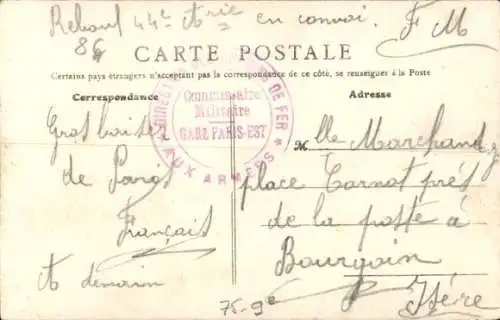 Rebouf 44e Arie en convoi. F M
86
CARTE POSTALE
Certains pays étrangers n'acceptent pas la correspondance de ce côté, se renseigner à la Poste
Correspondance
Adresse
DIRECTION CHEMINS DE FER
AUX ARMÉES
Commissaire
Militaire
GARE PARIS-EST
Gros baiser
de
Français
A demain
Mlle Marchand
place Carnot près
de la poste à
Bourgoin
Isère
75-9e